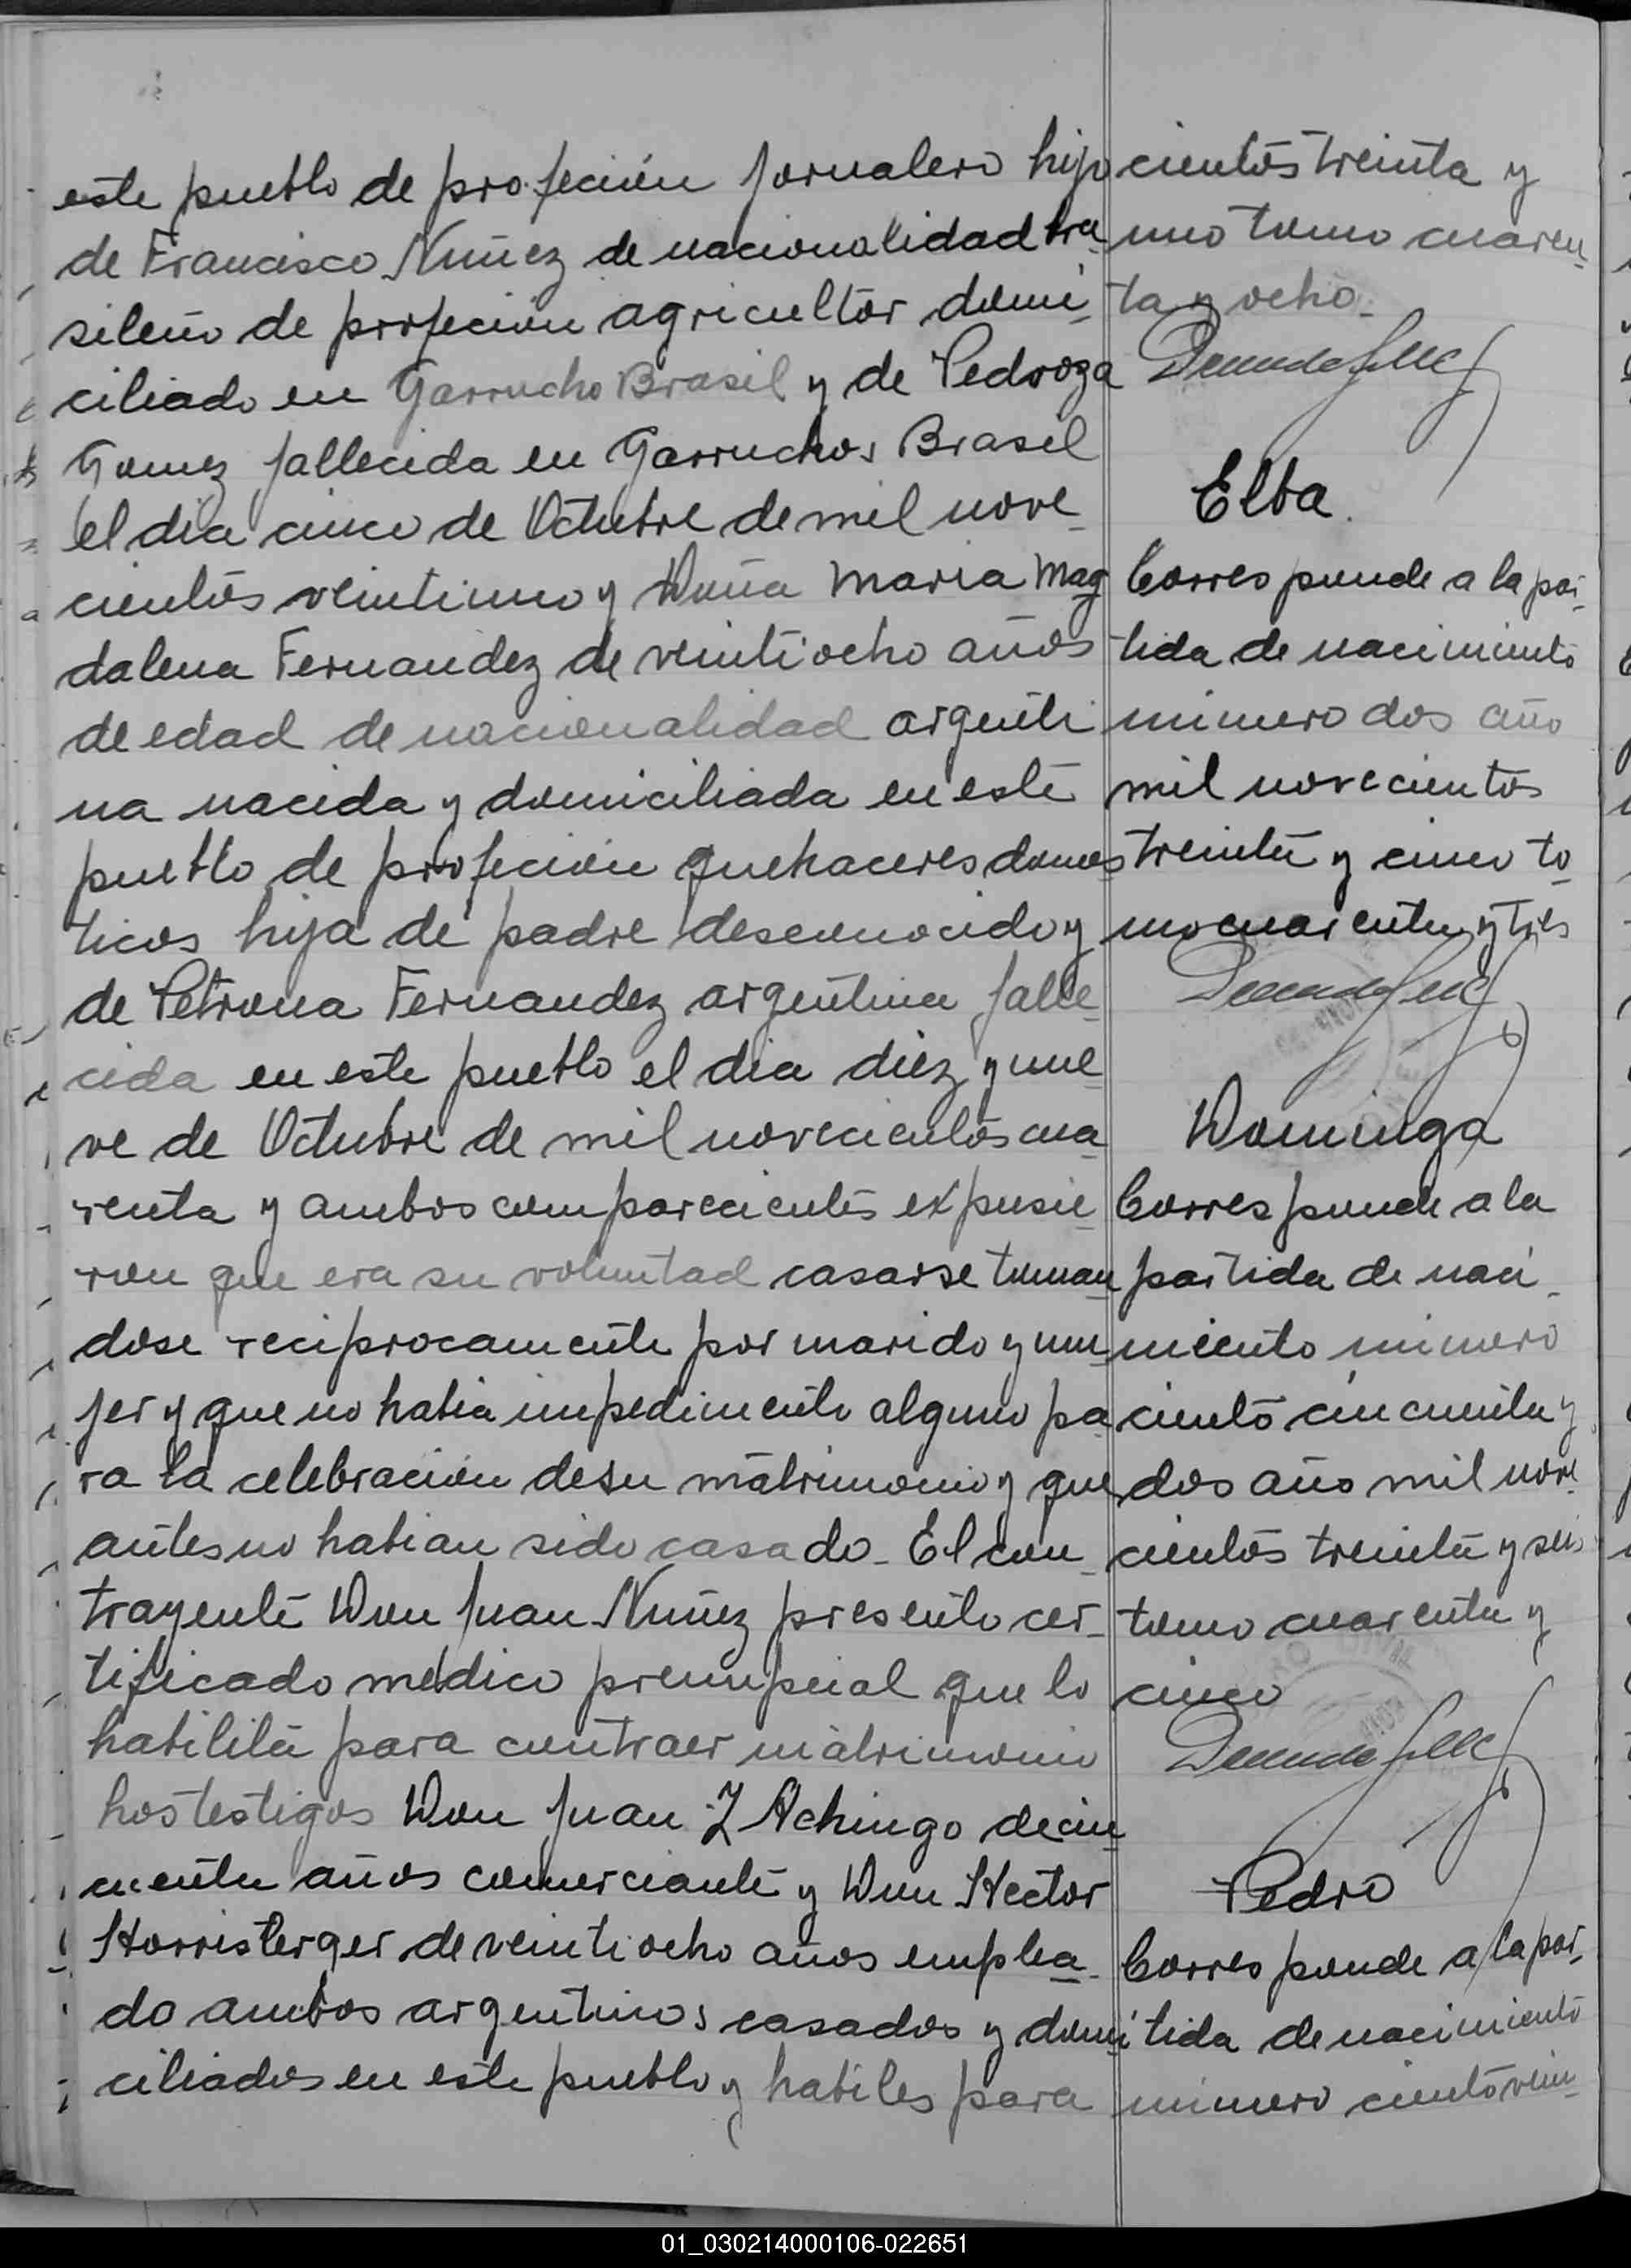 este pueblo de profeción jornalero hijo
de Francisco Nuñez de nacionalidad bra
sileño de profeción agricultor domi
ciliado en Garrucho Brasil y de Pedroza
Gomez fallecida en Garruchos Brasil
el dia cinco de Octubre de mil nove
cientos veintiuno y Doña Maria Mag
dalena Fernandez de veintiocho años
de edad de nacionalidad argenti
na nacida y domiciliada en este
pueblo de profeción quehaceres domes
ticos hija de padre desconocido y
de Petrona Fernandez argentina falle
cida en este pueblo el dia diez y nue
ve de Octubre de mil novecientos cua
renta y ambos comparecientes expusie
ron que era su voluntad casarse toman
dose reciprocamente por marido y mu
jer y que no habia impedimento alguno pa
ra la celebración de su matrimonio y que
antes no habian sido casado_ El con_
trayente Don Juan Nuñez presento cer_
tificado medico prenupcial que lo
habilita para contraer matrimonio
hos testigos Don Juan Z Achingo de cin
cuenta años comerciante y Don Hector
de veintiocho años emplea_
do ambos argentinos casados y domi
ciliados en este pueblo y habiles para
cientos treinta y
uno tomo cuaren
ta y ocho_
Elba.
Corresponde a la par_
tida de nacimiento
número dos año
mil novecientos
treinta y cinco to
mo cuarenta y tres
Dominga
Corresponde a la
partida de naci_
miento número
ciento cincuenta y
dos año mil nove
cientos treinta y seis
tomo cuarenta y
cinco
Pedro
Corresponde a la par_
tida de nacimiento
número ciento vein_
01_030214000106-022651